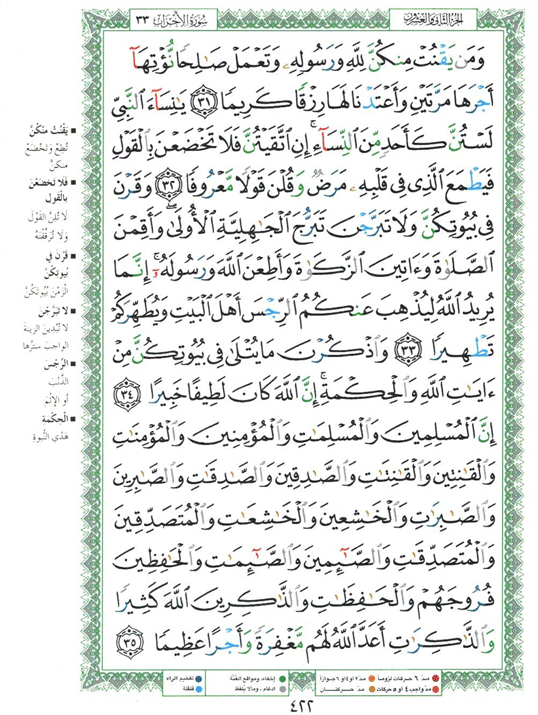 الجزء الثاني والعشرون
سورة الأحزاب ٣٣
وَمَن يَقْنُتْ مِنكُنَّ لِلَّهِ وَرَسُولِهِۦ وَتَعْمَلْ صَٰلِحًا نُّؤْتِهَآ
أَجْرَهَا مَرَّتَيْنِ وَأَعْتَدْنَا لَهَا رِزْقًا كَرِيمًا ٣١ يَٰنِسَآءَ ٱلنَّبِىِّ
لَسْتُنَّ كَأَحَدٍ مِّنَ ٱلنِّسَآءِ ۚ إِنِ ٱتَّقَيْتُنَّ فَلَا تَخْضَعْنَ بِٱلْقَوْلِ
فَيَطْمَعَ ٱلَّذِى فِى قَلْبِهِۦ مَرَضٌ وَقُلْنَ قَوْلًا مَّعْرُوفًا ٣٢ وَقَرْنَ
فِى بُيُوتِكُنَّ وَلَا تَبَرَّجْنَ تَبَرُّجَ ٱلْجَٰهِلِيَّةِ ٱلْأُولَىٰ ۖ وَأَقِمْنَ
ٱلصَّلَوٰةَ وَءَاتِينَ ٱلزَّكَوٰةَ وَأَطِعْنَ ٱللَّهَ وَرَسُولَهُۥٓ ۚ إِنَّمَا
يُرِيدُ ٱللَّهُ لِيُذْهِبَ عَنكُمُ ٱلرِّجْسَ أَهْلَ ٱلْبَيْتِ وَيُطَهِّرَكُمْ
تَطْهِيرًا ٣٣ وَٱذْكُرْنَ مَا يُتْلَىٰ فِى بُيُوتِكُنَّ مِنْ
ءَايَٰتِ ٱللَّهِ وَٱلْحِكْمَةِ ۚ إِنَّ ٱللَّهَ كَانَ لَطِيفًا خَبِيرًا ٣٤
إِنَّ ٱلْمُسْلِمِينَ وَٱلْمُسْلِمَٰتِ وَٱلْمُؤْمِنِينَ وَٱلْمُؤْمِنَٰتِ
وَٱلْقَٰنِتِينَ وَٱلْقَٰنِتَٰتِ وَٱلصَّٰدِقِينَ وَٱلصَّٰدِقَٰتِ وَٱلصَّٰبِرِينَ
وَٱلصَّٰبِرَٰتِ وَٱلْخَٰشِعِينَ وَٱلْخَٰشِعَٰتِ وَٱلْمُتَصَدِّقِينَ
وَٱلْمُتَصَدِّقَٰتِ وَٱلصَّٰٓئِمِينَ وَٱلصَّٰٓئِمَٰتِ وَٱلْحَٰفِظِينَ
فُرُوجَهُمْ وَٱلْحَٰفِظَٰتِ وَٱلذَّٰكِرِينَ ٱللَّهَ كَثِيرًا
وَٱلذَّٰكِرَٰتِ أَعَدَّ ٱللَّهُ لَهُم مَّغْفِرَةً وَأَجْرًا عَظِيمًا ٣٥
■ يَقْنُتْ مِنكُنَّ
تُطِعْ وَتَخْضَعْ
مِنكُنَّ
■ فَلَا تَخْضَعْنَ
بِالْقَوْلِ
لَا تُلِنَّ الْقَوْلَ
وَلَا تُرَقِّقْنَهُ
■ قَرْنَ فِي
بُيُوتِكُنَّ
الْزَمْنَ بُيُوتَكُنَّ
■ لَا تَبَرَّجْنَ
لَا تُبْدِينَ الزِّينَةَ
الوَاجِبَ سَتْرُهَا
■ الرِّجْسَ
الذَّنْبَ
أَوِ الإِثْمَ
■ الْحِكْمَةِ
هَدْيِ النُّبُوَّةِ
مدّ ٦ حركات لزوماً
مدّ ٢ أو ٤ أو ٦ جوازاً
إخفاء، ومواقع الغُنَّة
تفخيم الراء
مدّ واجب ٤ أو ٥ حركات
مدّ حركتان
ادغام، ومالا يلفظ
قلقلة
٤٢٢